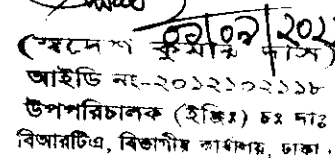 ০৯/০৯/২০২
(স্বদেশ কুমার দাস)
আইডি নং-২০১২১০২১১৮
উপপরিচালক (ইঞ্জিঃ) চঃ দাঃ
বিআরটিএ, বিভাগীয় কার্যালয়, ঢাকা।